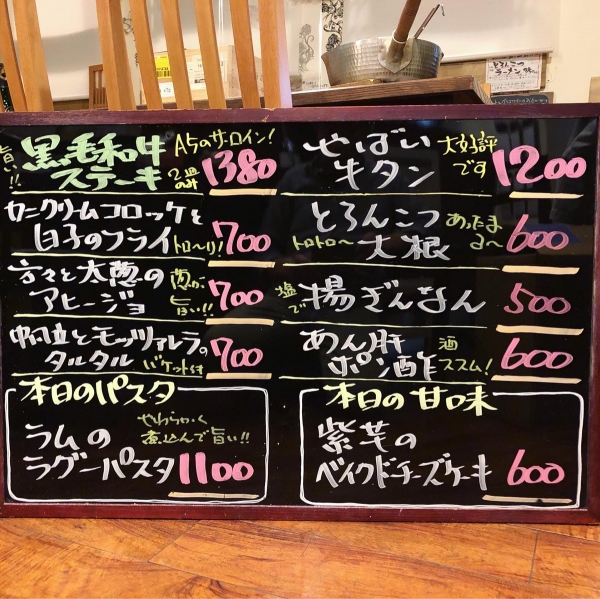 とろんこつ
ラーメン
旨い!!
黒毛和牛
ステーキ
A5のサーロイン!
2皿のみ
1380
カニクリームコロッケと
白子のフライ
トロ〜リ!
700
太葱の
アヒージョ
旨い!!
700
帆立とモッツァレラの
タルタル
バケット付
700
本日のパスタ
ラムの
ラグーパスタ
やわらかく
煮込んで旨い!!
1100
やばい
牛タン
大好評
です
1200
とろんこつ
大根
トロトロ〜
あったま
る〜
600
塩で
揚ぎんなん
500
あん肝
ポン酢
酒
ススム!
600
本日の甘味
紫芋の
ベイクドチーズケーキ
600